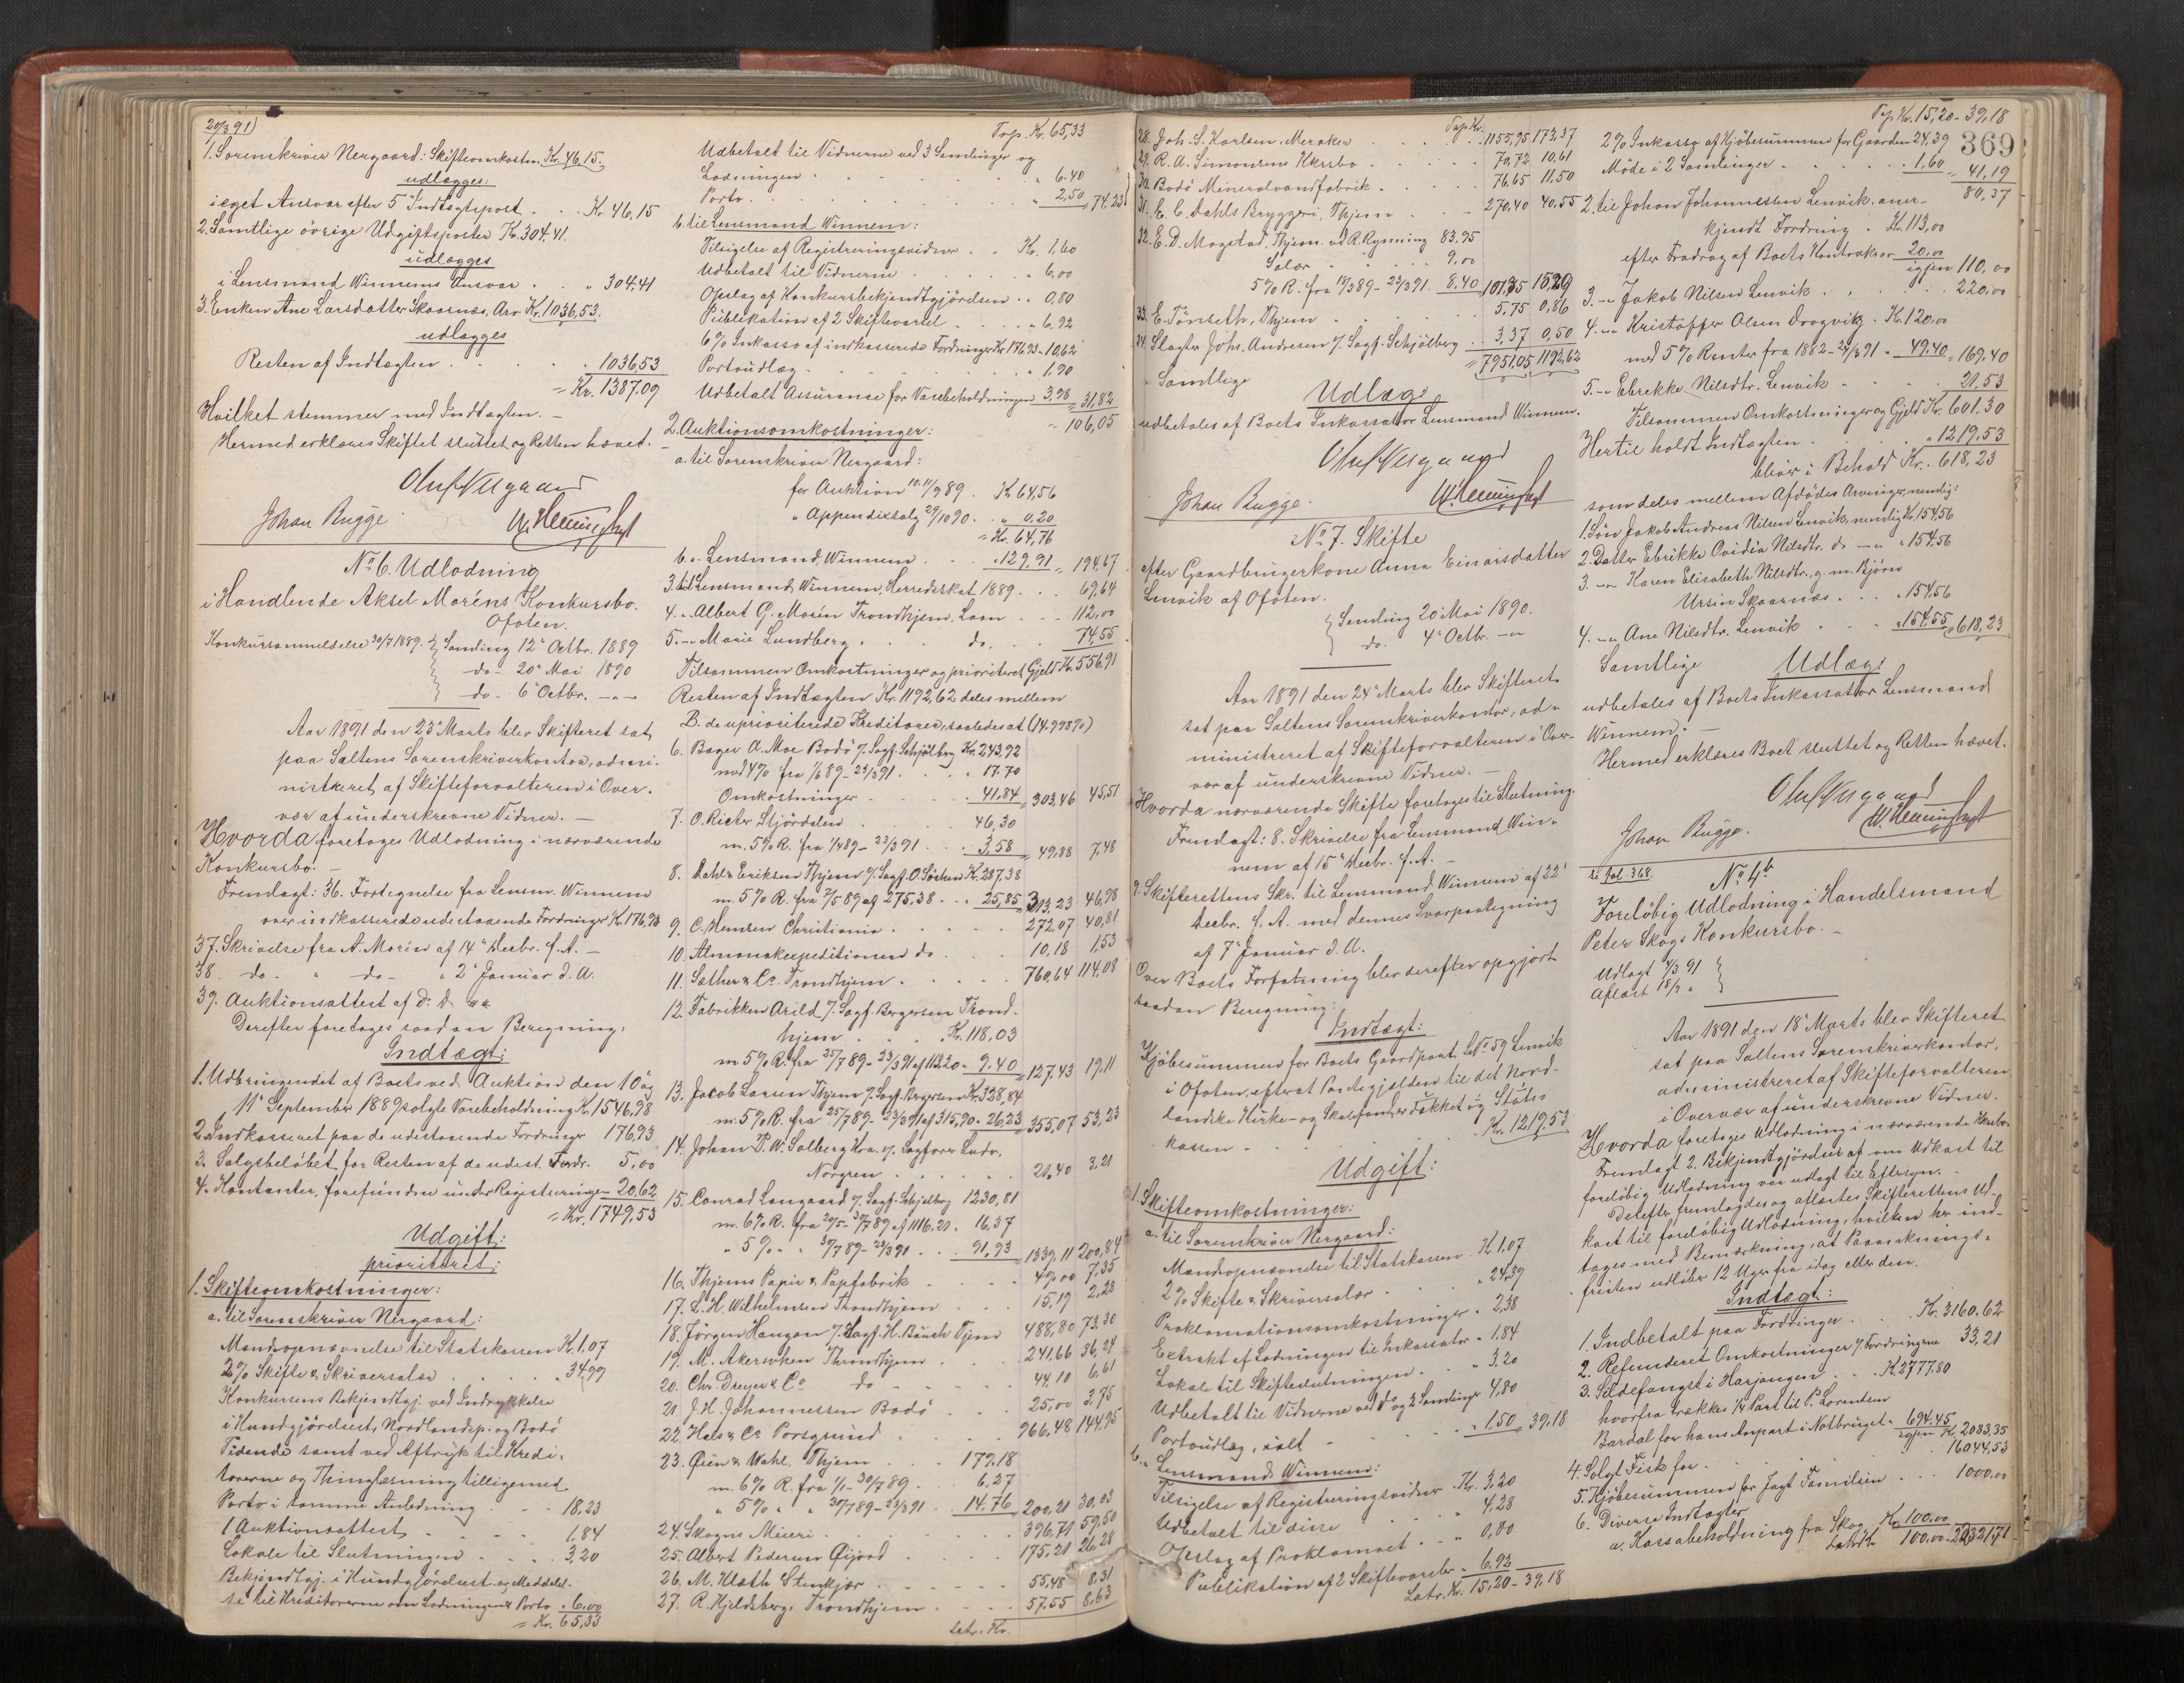 20/3 91)
1. Sorenskriver Nergaard: Skifteomkostn. Kr. 46,15.
udlægges:
i eget Ansvar efter 5te Indtægtspost . . Kr. 46,15
2. Samtlige övrige Udgiftsposter Kr. 304.41.
udlægges
i Lensmand Winnems Ansvar . . " 304,41
3. Enken Ane Larsdatter Skaarnæs, Arv Kr. 1036,53.
udlægges
Resten af Indtægten . . . . 1036,53
= Kr. 1387.09
Hvilket stemmer med Indtægten. –
Hermed erklæres Skiftet sluttet og Retten hævet. –
Oluf Nergaard
Johan Bugge.
No 6. Udlodning
i Handlende Aksel Moréns Konkursbo.
Ofoten.
Konkursanmeldelse 30/7 1889. Samling 12te Octbr. 1889
do - 20de Mai 1890
do - 6te Octbr. – " –
Aar 1891 den 23de Marts blev Skifteret sat
paa Saltens Sorenskriverkontor, admi-
nistreret af Skifteforvalteren i Over-
vær af underskrevne Vidner. –
Hvorda foretoges Udlodning i nærværende
Konkursbo. –
Fremlagt: 36. Fortegnelse fra Lensm. Winnem
over indkasserede udestaaende Fordringer Kr. 176,93
37. Skrivelse fra A. Morén af 14de Decbr. f. A. –
38. do - " do - " 2de Januar d. A.
39. Auktionsattest af D. D.
Derefter foretoges saadan Beregning:
Indtægt:
1. Udbringendet af Boets ved Auktion den 10de og
11te September 1889 solgte Varebeholdning Kr. 1546,98
2. Indkasseret paa de udestaaende Fordringer 176,93
3. Salgsbeløbet for Resten af de udest. Fordr. 5,00
4. Kontanter, forefundne under Registreringen 20,62
= Kr. 1749,53
Udgift:
prioriteret:
1. Skifteomkostninger:
a. til Sorenskriver Nergaard:
Mandsopnævnelse til Statskassen Kr. 1,07
2% Skifte & Skriversalær . . . 34,99
Konkursens Bekjendtgj. ved Indrykkelse
i Kundgjörelsest, Nordlandsp. og Bodö
Tidende samt ved Aftryk til Kredi-
torerne og Thinglæsning tilligemed
Porto i samme Anledning . . 18,23
1 Auktionsattest . . . 1,84
Lokale til Slutningen . . . 3,20
Bekjendtgj. i Kundgjörelsest. og Meddelel-
se til Kreditorerne om Lodningen & Porto . 6,00
= Kr. 65,33
Trp. Kr. 65,33
Udbetalt til Vidnerne ved 3 Samlinger og
Lodningen . . . . . " 6.40
Porto . . . . . " 2,50 = 74.23
b. til Lensmand Winnem:
Tilsigelse af Registreringsvidner . . Kr. 1,60
Udbetalt til Vidnerne . . . . " 6,00
Opslag af Konkursbekjendtgjördsen . . 0,80
Publikation af 2 Skiftevarsel . . . . " 6,92
6% Inkasso af indkasserede Fordringer Kr. 176.93 - 10,62
Portoudlæg . . . . . " 1,90
Udbetalt Assurance for Varebeholdningen 3,98 = 31,82
= 106,05
2. Auktionsomkostninger:
a. til Sorenskriver Nergaard:
for Auktion 10.11/9 89 . Kr. 64,56
" Appendixsalg 29/10 90 . . " 0.20
= Kr. 64,76
b. " Lensmand Winnem . . . 129,91 = 194,67
3. til Lensmand Winnem, Herredsskat 1889 . . . 69,64
4. " Albert G. Morén Trondhjem, Løn . . . 112,00
5. " Marie Lundberg . . do. . . 74.55
Tilsammen Omkostninger og prioriteret Gjeld Kr. 556.91
Resten af Indtægten Kr. 1192,62 deles mellem
B. de uprioriterede Kreditorer, saaledes at (14.998%)
6. Bager A. Moe Bodö v/ Sagf. Schjölberg Kr. 243.92
med 4% fra 1/6 89 – 23/3 91 . . . 17.70
Omkostninger . . . 41,84 = 303,46 45,51
7. O. Rieber Stjördalen . . . 46,30
m. 5% R. fra 1/4 89 – 23/3 91 . . 3,58 = 49,88 7,48
8. Dahl & Eriksen Thjem v/ Sagf. O. Sörhus Kr. 287.38
m. 5% R. fra 7/5 89 af 275,38 . . . 25,85 = 313,23 46,98
9. C. Hansen Christiania . . . 272,07 40,81
10. Almanakexpeditionen do . . . 10,18 1,53
11. Sæther & Co. Trondhjem . . . 760,64 114,08
12. Fabrikken Arild v/ Sagf. Bergersen Trond-
hjem . . . Kr. 118,03
m 5% R. fra 25/7 89 – 23/3 91 af 113.20 - 9.40 = 127.43 19,11
13. Jacob Larsen Thjem v/ Sagf. Bergersen Kr. 328,84
m. 5% R. fra 25/7 89 – 23/3 91 af 315,90 - 26,23 = 355,07 53,23
14. Johan P. W. Solberg Kra. v/ Sagfører Ludv.
Norgren . . . 21,40 3,21
15. Conrad Langaard v/ Sagf. Schjölberg 1230,81
m. 6% R. fra 20/5 – 30/7 89 af 1116.20 . 16,37
" 5% - . 30/7 89 – 23/3 91 . . 91,93 = 1339.11 200,84
16. Thjems Papir & Papfabrik . . . 49,00 7,35
17. L. H. Wilhelmsen Trondhjem . . . 15,19 2,28
18. Jörgen Haugan v/ Sagf. H. Bauck Thjem 488,80 73,30
19. M. Akerwhen Throndhjem . . . 241,66 36,24
20. Chr. Dreyer & Co do - . . . 44,10 6.61
21. J. H. Johannessen Bodö . . . 25,00 3,75
22. Hals & Co Porsgrund . . . 966,48 144,95
23. Øien & Wahl. Thjem . . . 179,18
m. 6% R. fra 1/1 – 30/7 89 . . . 6,27
" 5% " " 30/7 89 – 23/3 91 . . 14.76 = 200,21 30,03
24. Skogns Mieri . . . 396,71 59,50
25. Albert Pedersen Øijord . . . 175,21 26,28
26. M. Klæth Stenkjær . . . 55,48 8,31
27. R. Kjeldsberg, Trondhjem . . . 57.55 8,63
Latr. Kr.
Trp Kr.
28. Joh. S. Karlsen, Meraker . . . 1155,75 173,37
29. R. A. Simonsens Hkrsbo . . . 70,72 10,61
30. Bodö Mineralvandfabrik . . . 76,65 11,50
31. E. C. Dahls Bryggeri, Thjem . . . 270,40 40,55
32. E. D. Magstad, Thjem vd R. Rynning 83,95
Salær . . . 9,00
5% R. fra 19/3 89 – 23/3 91 . 8.40 101,35 15,29
33. E. Tönseth, Thjem . . . 5.75 0,86
34. Slagter Johs. Andresen v/ Sagf. Schjölberg . . 3,37 0,50
= 7951.05 1192,62
Samtlige
Udlæg:
udbetales af Boets Inkassator Lensmand Winnem.
Oluf Nergaard
Johan Bugge.
No 7. Skifte
efter Gaardbrugerkone Anna Einarsdatter
Lenvik af Ofoten.
Samling 20 Mai 1890.
do. 4de Octbr. – " –
Aar 1891 den 24de Marts blev Skifteret
sat paa Saltens Sorenskriverkontor, ad-
ministreret af Skifteforvalteren i Over-
vær af underskrevne Vidner. –
Hvorda nærværende Skifte foretoges til Slutning.
Fremlagt: 8. Skrivelse fra Lensmand Win-
nem af 15de Decbr. f. A. –
9. Skifterettens Skr. til Lensmand Winnem af 22de
Decbr. f. A. med dennes Svarpaategning
af 7de Januar d. A.
Over Boets Forfatning blev derefter opgjort
saadan Beregning:
Indtægt:
Kjöbesummen for Boets Gaardpart, L. No 59 Lenvik
i Ofoten, efterat Pantegjælden til det Nord-
landske Kirke- og Skolefond er fakket og Stats-
kassen - . . Kr. 1219,53
Udgift:
1. Skifteomkostninger:
a. til Sorenskriver Nergaard:
Mandsopnævnelse til Statskassen . Kr. 1,07
2% Skifte & Skriversalær . . . " 24,39
Proklamationsomkostninger . " 2,38
Extrakt af Lodningen til Inkassator " 1,84
Lokale til Skifteslutningen . . . " 3.20
Udbetalt til Vidnerne ved 1 og 2 Samlinger 4,80
Portoudlæg, ialt - . . . " 1.50 = 39,18
b. " Lensmand Winnem:
Tilsigelse af Registreringsvidner . Kr. 3,20
Udbetalt til disse . . . " 4,28
Opslag af Proklamaet . . . " 0,80
Publikation af 2 Skiftevarsler . . 6,92
Latr. Kr. 15,20 – 39,18
Trp Kr. 15,20 – 39,18
369
2% Inkasso af Kjöbesummen for Gaarden 24,39
Möde i 2 Samlinger . . . 1,60 = 41,19
80,37
2. til Johan Johannessen Lenvik, aner-
kjendt Fordring . Kr. 113,00
efter Fradrag af Boets Kontrakrav 20,00
igjen 110,00
3. – " Jakob Nilsen Lenvik . . . 220,00
4. – " Kristoffer Olsen Drogvik . Kr. 120,00
med 5% Renter fra 1882 – 24/3 91 . 49.40 = 169,40
5. – " Ebrekke Nilsdtr. Lenvik . . . 21,53
Tilsammen Omkostninger og Gjeld Kr. 601,30
Hertil holdt Indtægten . . . " 1219,53
bliver i Behold Kr. 618,23
som deles mellem Afdödes Arvinger, nemlig:
1. Sön Jakob Andreas Nilsen Lenvik, nemlig Kr. 154,56
2. Datter Ebrikke Ovidia Nilsdtr. do – " " 154.56
3. – " Karen Elisabeth Nilsdtr., g. m. Bjørn
Ursin Skaarnæs . . . " 154,56
4. – " Ane Nilsdtr. Lenvik . . . " 154,55 = 618,23
Samtlige Udlæg:
udbetales af Boets Inkassator Lensmand
Winnem. –
Hermed erklæres Boet sluttet og Retten hævet.
Oluf Nergaard
Johan Bugge.
se fol. 368.
No 4b
Foreløbig Udlodning i Handelsmand
Peter Skogs Konkursbo. –
Udlagt 4/3 91
Aflæst 18/3 "
Aar 1891 den 18de Marts blev Skifteret
sat paa Saltens Sorenskriverkontor,
administreret af Skifteforvalteren
i Overvær af underskrevne Vidner.
Hvorda foretoges Udlodning i nærværende Hkrsbo.
Fremlagt 2. Bekjendtgjördser af om Udkast til
foreløbig Udlodning var udlagt til Eftersyn. –
Derefter fremlagdes og aflæstes Skifterettens Ud-
kast til foreløbig Udlodning, hvilken her ind-
tages med Bemærkning, at Paaanknings-
fristen udløber 12 Uger fra idag eller den.
Indtægt:
1. Indbetalt paa Fordringer . . . Kr. 3160.62
2. Refunderet Omkostninger v/ Fordringerne 33,21
3. Sildefangst i Harjangen . . Kr. 2777.80
hvorfra trækkes 1/4 Part til P. Lorentsen
Bardal for hans Anpart i Notbruget . 694.45
igjen Kr. 2083,35
4. Solgt Fisk for . . . 16044,53
5. Kjöbesummen for Jagt Familien . . . 1000,00
6. Diverse Indtægter
a. Kassabeholdning fra Skog Kr. 100,00
Latr. Kr. 100.00 22321,71